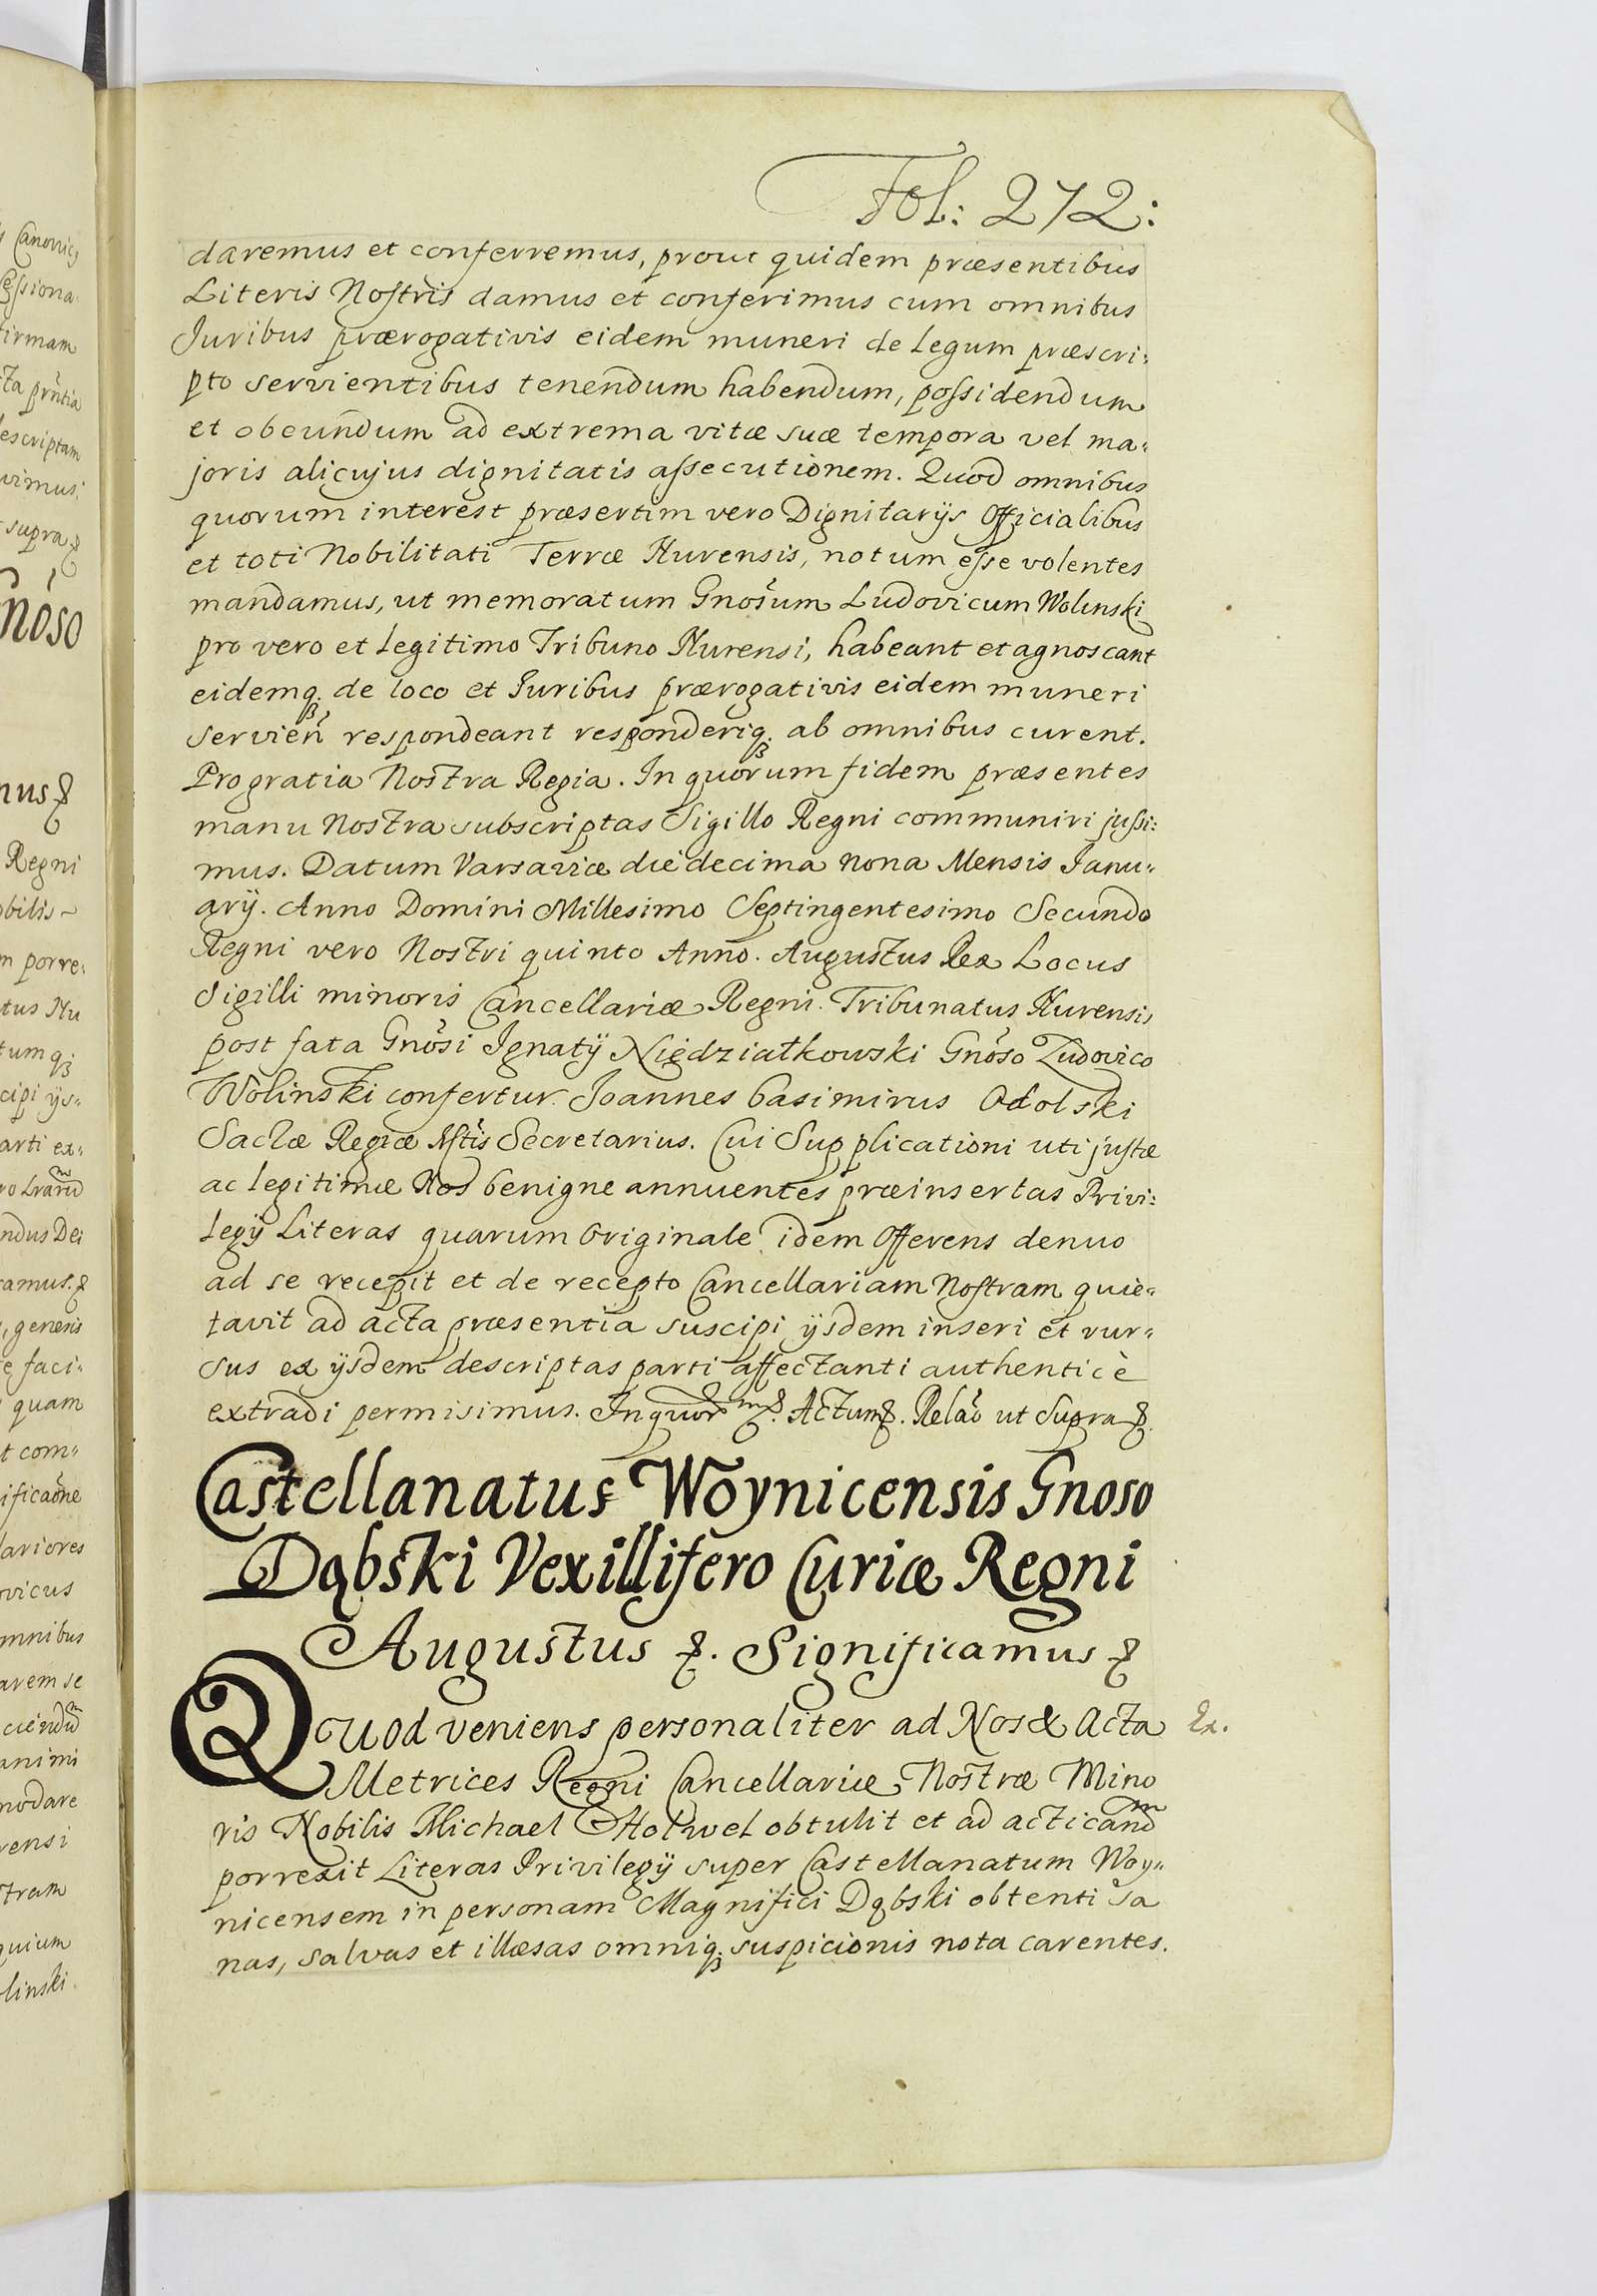 Fol: 272:
daremus et conferremus, prout quidem præsentibus
Literis Nostris damus et conferimus cum omnibus
Juribus prærogativis eidem muneri de Legum præscri:
pto servientibus tenendum habendum, possidendum
et obeundum ad extrema vitæ suæ tempora vel ma-
joris alicujus dignitatis assecutionem. Quod omnibus
quorum interest præsertim vero Dignitarÿs Officialibus
et toti Nobilitati Terræ Nurensis, notum esse volentes
mandamus, ut memoratum Gnosum Ludovicum Wolinski
pro vero et legitimo Tribuno Nurensi, habeant et agnoscant
eidemq. de loco et Juribus prærogativis eidem muneri
servien respondeant responderiq. ab omnibus curent.
Pro gratia Nostra Regia. In quorum fidem præsentes
manu Nostra subscriptas Sigillo Regni communiri jussi:
mus. Datum Varsaviæ die decima nona Mensis Janu-
arÿ. Anno Domini Millesimo Septingentesimo Secundo
Regni vero Nostri quinto Anno. Augustus Rex Locus
Sigilli minoris Cancellariæ Regni. Tribunatus Nurensis
post fata Gnosi Ignatÿ Niedziałkowski Gnoso Ludovico
Wolinski confertur. Joannes Casimirus Odolski
Sacræ Regiæ Mtis Secretarius. Cui Supplicationi uti justæ
ac legitimæ Nos benigne annuentes præinsertas Privi:
legÿ Literas quarum Originale idem Offerens denuo
ad se recepit et de recepto Cancellariam Nostram quie-
tavit ad acta præsentia suscipi ÿsdem inseri et rur-
sus ex ÿsdem descriptas parti affectanti authenticè
extradi permisimus. In quor m &. Actum &. Relao ut Supra &.
Castellanatus Woynicensis Gnoso
Dąbski Vexillifero Curiæ Regni
Augustus &. Significamus &
Quod veniens personaliter ad Nos & Acta
Ex.
Metrices Regni Cancellariæ Nostræ Mino
ris Nobilis Michael Holwel obtulit et ad acticand m
porrexit Literas Privilegÿ super Castellanatum Woy-
nicensem in personam Magnifici Dąbski obtenti sa
nas, salvas et illæsas omniq. suspicionis nota carentes.